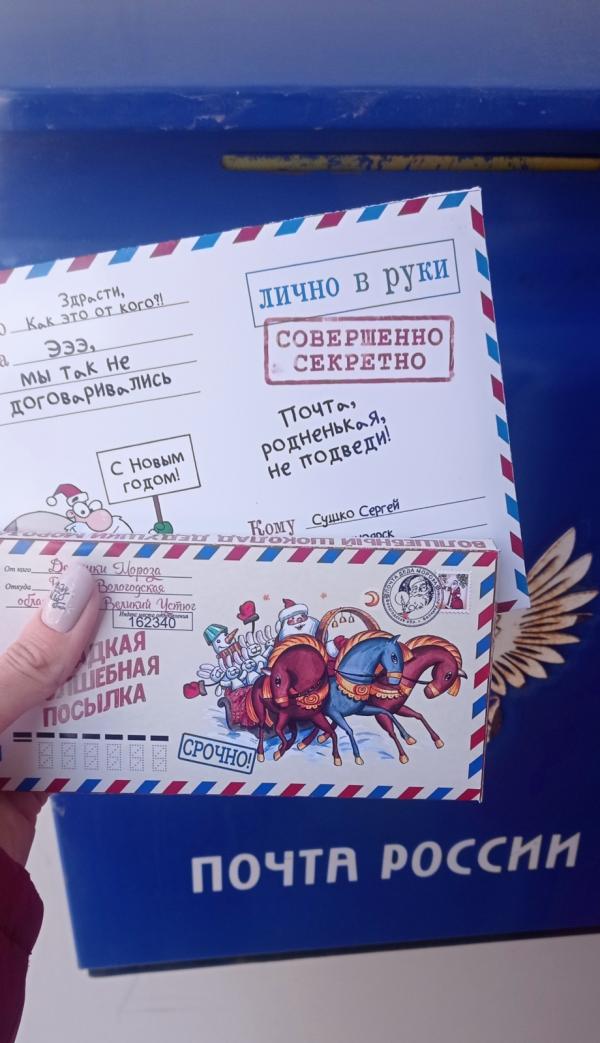 Здрасти,
Как это от кого?!
Эээ,
мы так не
договаривались
ЛИЧНО В РУКИ
СОВЕРШЕННО
СЕКРЕТНО
Почта,
родненькая,
не подведи!
С Новым
годом!
Кому Сушко Сергей
ВОЛШЕБНЫЙ ШОКОЛАД ДЕДУШКИ МОРО
От кого Мороза
Откуда Вологодская
обла Великий Устюг
162340
ПОСЫЛКА
СРОЧНО!
ПОЧТА ДЕДА МОРОЗА
ПОЧТА РОССИИ